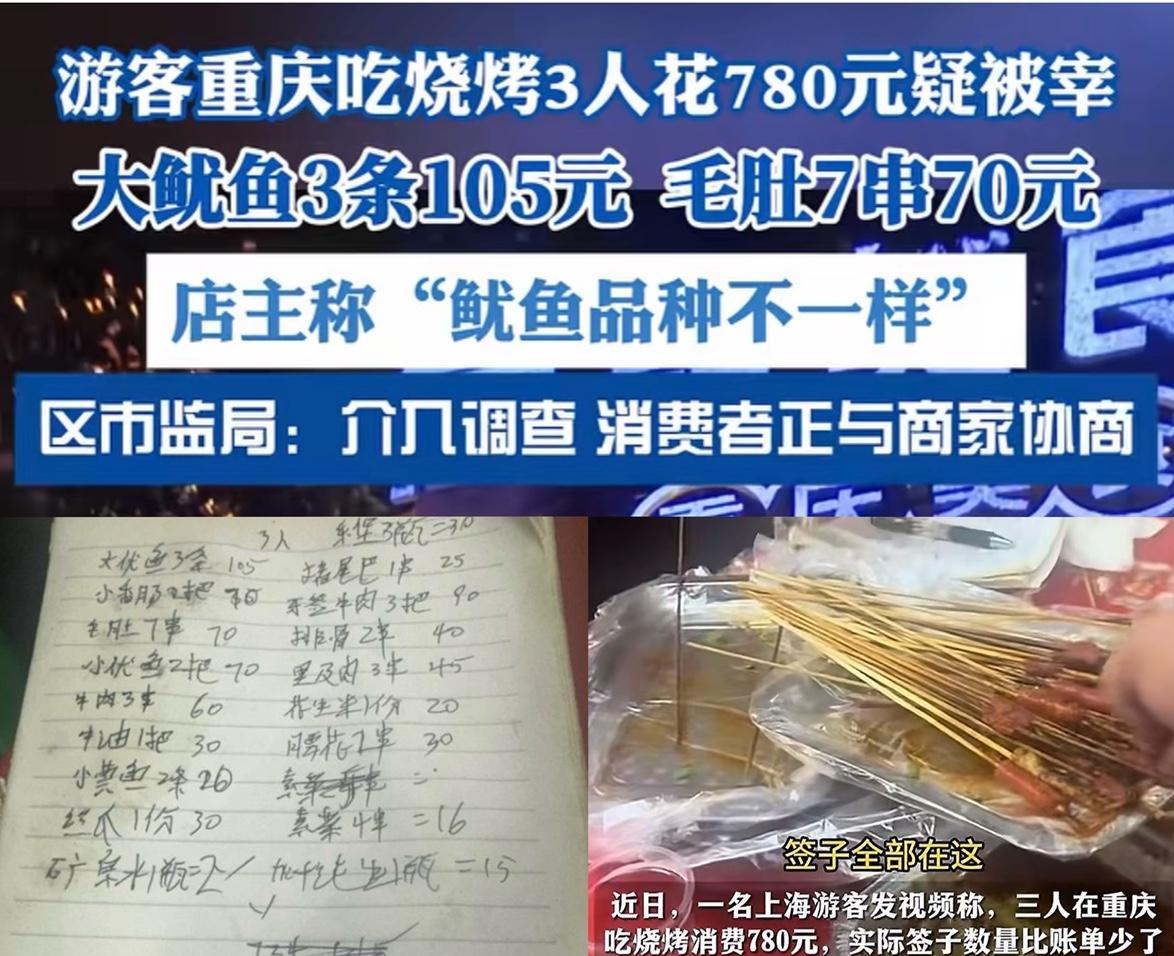 游客重庆吃烧烤3人花780元疑被宰
大鱿鱼3条105元 毛肚7串70元
店主称“鱿鱼品种不一样”
区市监局：介入调查 消费者正与商家协商
3人 3瓶=30
大优鱼3条 105 猪尾巴1串 25
小香肠2把 牙签牛肉3把 90
毛肚7串 70 排骨2串 40
小优鱼2把 70 里及肉3串 45
牛肉3串 60 花生米1份 20
牛油1把 30 腰花2串 30
小黄鱼2条 20
丝瓜1份 30 素菜4串=16
矿泉水1瓶=2 1瓶=15
签子全部在这
近日，一名上海游客发视频称，三人在重庆
吃烧烤消费780元，实际签子数量比账单少了